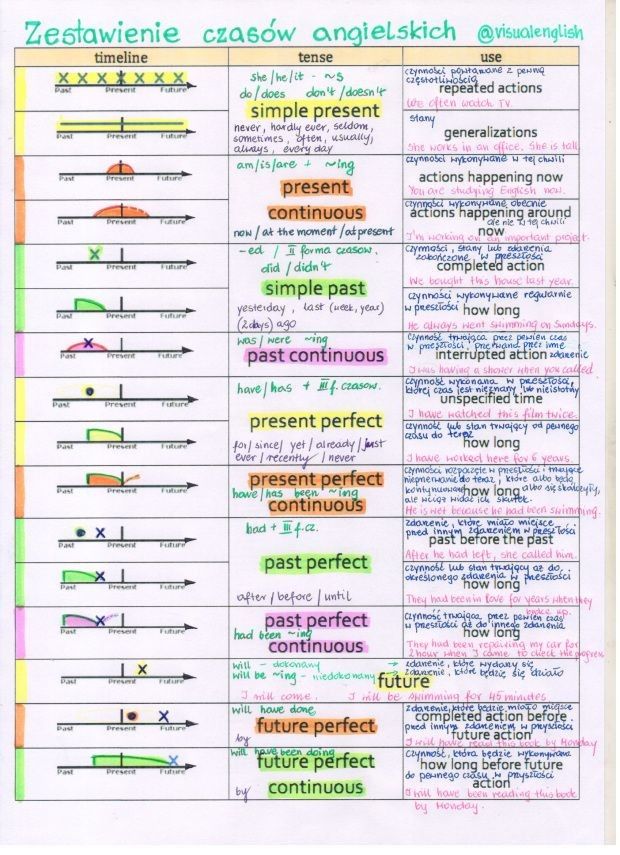 Zestawienie czasów angielskich @visualenglish
timeline tense use
Past Present Future
she/he/it - ~s
do/does don't/doesn't
simple present
never, hardly ever, seldom,
sometimes, often, usually,
always, every day
czynności powtarzane z pewną
częstotliwością
repeated actions
We often watch TV.
Past Present Future
stany
generalizations
She works in an office. She is tall.
Past Present Future
am/is/are + ~ing
present
continuous
now/at the moment/at present
czynności wykonywane w tej chwili
actions happening now
You are studying English now.
Past Present Future
czynności wykonywane obecnie
ale nie w tej chwili
actions happening around
now
I'm working on an important project.
Past Present Future
-ed / II forma czasow.
did / didn't
simple past
yesterday, last (week, year)
(2 days) ago
czynności, stany lub zdarzenia
zakończone w przeszłości
completed action
We bought this house last year.
Past Present Future
czynności wykonywane regularnie
w przeszłości
how long
He always went swimming on Sundays.
Past Present Future
was/were ~ing
past continuous
czynność trwająca przez pewien czas
w przeszłości, przerwana przez inne
zdarzenie
interrupted action
I was having a shower when you called
Past Present Future
have/has + III f. czasow.
present perfect
for/since/ yet/already/just
ever/recently/never
czynność wykonana w przeszłości,
której czas jest nieznany lub nieistotny
unspecified time
I have watched this film twice.
Past Present Future
czynność lub stan trwający od pewnego
czasu do teraz
how long
I have worked here for 6 years.
Past Present Future
present perfect
have/has been ~ing
continuous
czynności rozpoczęte w przeszłości i trwające
nieprzerwanie do teraz, które albo będą
kontynuowane albo się skończyły,
ale wciąż widać ich skutek.
how long
He is wet because he had been swimming.
Past Present Future
had + III f.cz.
past perfect
after/before/until
zdarzenie, które miało miejsce
przed innym zdarzeniem w przeszłości
past before the past
After he had left, she called him.
Past Present Future
czynność lub stan trwający aż do
określonego zdarzenia w przeszłości
how long
They had been in love for years when they
broke up.
Past Present Future
past perfect
had been ~ing
continuous
czynność trwająca przez pewien czas
w przeszłości aż do innego zdarzenia.
how long
They had been repairing my car for
2 hour when I came to check the progress
Past Present Future
will - dokonany
will be ~ing - niedokonany
future
I will come. I will be swimming for 45 minutes.
zdarzenie, które wydarzy się
zdarzenie, które będzie się działo
Past Present Future
will have done
future perfect
by
zdarzenie, które będzie miało miejsce
completed action before
przed innym zdarzeniem w przyszłości
future action
I will have read this book by Monday
Past Present Future
will have been doing
future perfect
by
continuous
czynność, która będzie wykonywana
how long before future
do pewnego czasu w przyszłości
action
I will have been reading this book
by Monday.